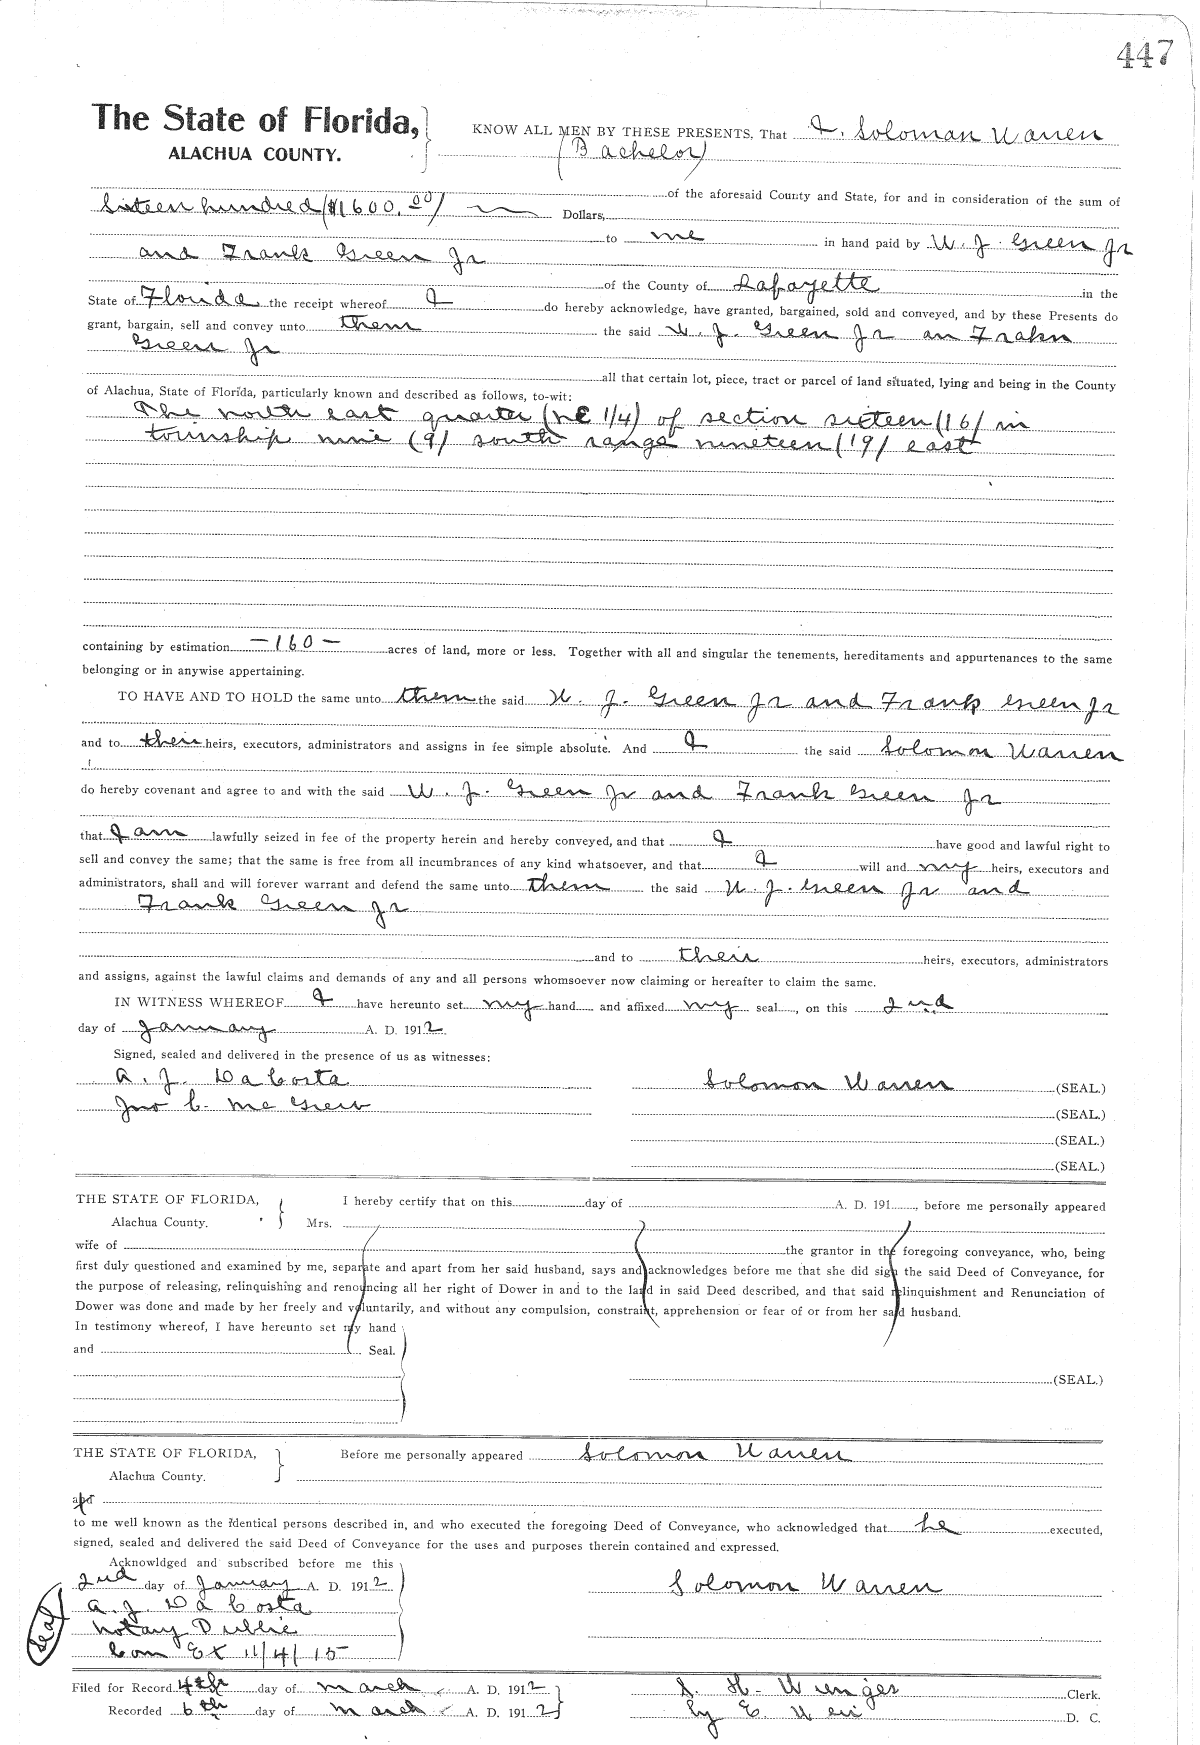 447
The State of Florida,
ALACHUA COUNTY.
KNOW ALL MEN BY THESE PRESENTS, That I, Soloman Warren
(Bachelor)
of the aforesaid County and State, for and in consideration of the sum of
Sixteen hundred ($1600.00) Dollars,
to me in hand paid by W. J. Green Jr
and Frank Green Jr
of the County of Lafayette in the
State of Florida the receipt whereof I do hereby acknowledge, have granted, bargained, sold and conveyed, and by these Presents do
grant, bargain, sell and convey unto them the said W. J. Green Jr an Frakn
Green Jr
all that certain lot, piece, tract or parcel of land situated, lying and being in the County
of Alachua, State of Florida, particularly known and described as follows, to-wit:
The north east quarter (NE 1/4) of section sixteen (16) in
township nine (9) south range nineteen (19) east
containing by estimation —160— acres of land, more or less. Together with all and singular the tenements, hereditaments and appurtenances to the same
belonging or in anywise appertaining.
TO HAVE AND TO HOLD the same unto them the said W. J. Green Jr and Frank Green Jr
and to their heirs, executors, administrators and assigns in fee simple absolute. And I the said Solomon Warren
do hereby covenant and agree to and with the said W. J. Green Jr and Frank Green Jr
that I am lawfully seized in fee of the property herein and hereby conveyed, and that I have good and lawful right to
sell and convey the same; that the same is free from all incumbrances of any kind whatsoever, and that I will and my heirs, executors and
administrators, shall and will forever warrant and defend the same unto them the said W. J. Green Jr and
Frank Green Jr
and to their heirs, executors, administrators
and assigns, against the lawful claims and demands of any and all persons whomsoever now claiming or hereafter to claim the same.
IN WITNESS WHEREOF I have hereunto set my hand and affixed my seal, on this 2nd
day of January A. D. 1912.
Signed, sealed and delivered in the presence of us as witnesses:
A. J. DaCosta
Solomon Warren (SEAL.)
Jno C. McGrew
(SEAL.)
(SEAL.)
(SEAL.)
THE STATE OF FLORIDA,
Alachua County.
I hereby certify that on this day of A. D. 191, before me personally appeared
Mrs.
wife of the grantor in the foregoing conveyance, who, being
first duly questioned and examined by me, separate and apart from her said husband, says and acknowledges before me that she did sign the said Deed of Conveyance, for
the purpose of releasing, relinquishing and renouncing all her right of Dower in and to the land in said Deed described, and that said relinquishment and Renunciation of
Dower was done and made by her freely and voluntarily, and without any compulsion, constraint, apprehension or fear of or from her said husband.
In testimony whereof, I have hereunto set my hand
and Seal.
(SEAL.)
THE STATE OF FLORIDA,
Alachua County.
Before me personally appeared Solomon Warren
and
to me well known as the identical persons described in, and who executed the foregoing Deed of Conveyance, who acknowledged that he executed,
signed, sealed and delivered the said Deed of Conveyance for the uses and purposes therein contained and expressed.
Acknowldged and subscribed before me this
2nd day of January A. D. 1912
Solomon Warren
A. J DaCosta
Notary Public
Com Ex 11/4/15
Seal
Filed for Record 4th day of March A. D. 1912
S. H. Wienges Clerk.
Recorded 6th day of March A. D. 1912
by E. D. C.